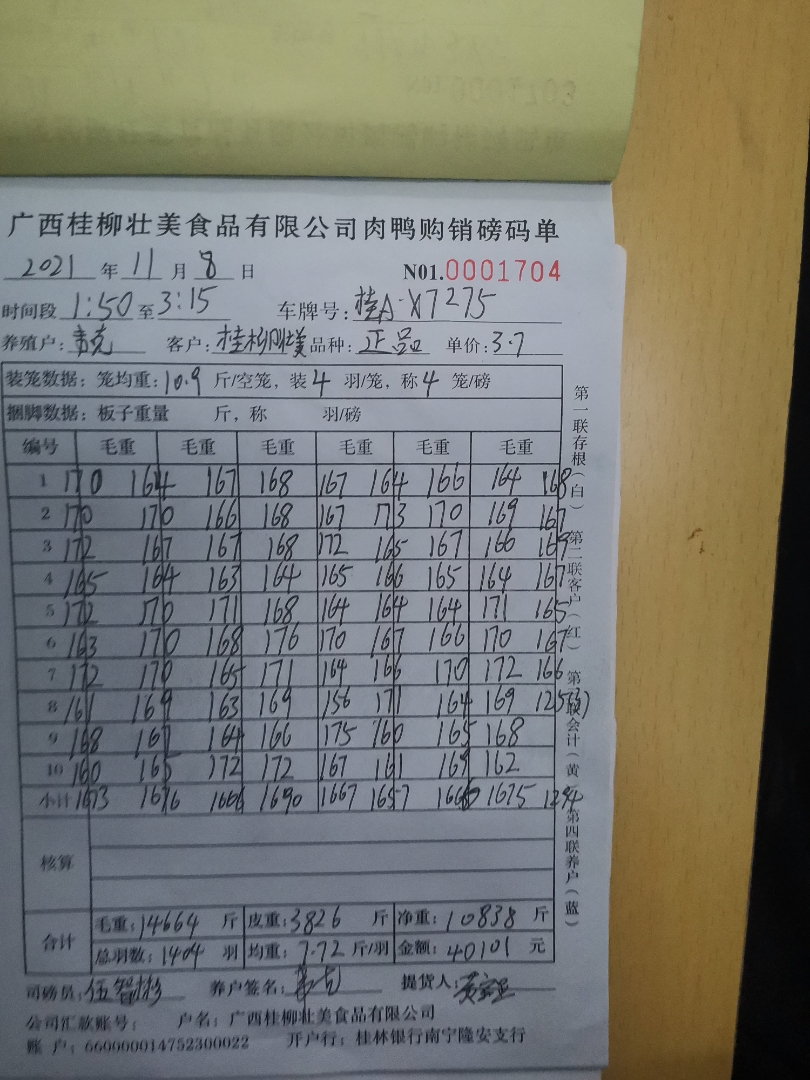 广西桂柳壮美食品有限公司肉鸭购销磅码单
2021 年 11 月 8 日 N01.0001704
时间段 1:50 至 3:15 车牌号: 桂A·X7275
养殖户: 客户: 桂柳壮美 品种: 正品 单价: 3.7
装笼数据: 笼均重: 10.9 斤/空笼, 装 4 羽/笼, 称 4 笼/磅
捆脚数据: 板子重量 斤, 称 羽/磅
编号 毛重 毛重 毛重 毛重 毛重 毛重
1 170 164 167 168 167 164 166 164 168
2 170 170 166 168 167 173 170 169 167
3 172 167 167 168 172 165 167 166 169
4 165 164 163 164 165 166 165 164 167
5 172 170 171 168 164 164 164 171 165
6 163 170 168 176 170 167 166 170 167
7 172 170 165 171 164 166 170 172 166
8 161 169 163 169 156 171 164 169 125(3)
9 168 167 164 166 175 160 165 168
10 160 165 172 172 167 161 169 162
小计 1673 1676 1666 1690 1667 1657 1666 1675 1294
核算
合计 毛重: 14664 斤 皮重: 3826 斤 净重: 10838 斤
总羽数: 1404 羽 均重: 7.72 斤/羽 金额: 40101 元
司磅员: 伍智彬 养户签名: 提货人:
公司汇款账号: 户名: 广西桂柳壮美食品有限公司
账 户: 660000014752300022 开户行: 桂林银行南宁隆安支行
第一联存根(白) 第二联客户(红) 第三联会计(黄) 第四联养户(蓝)